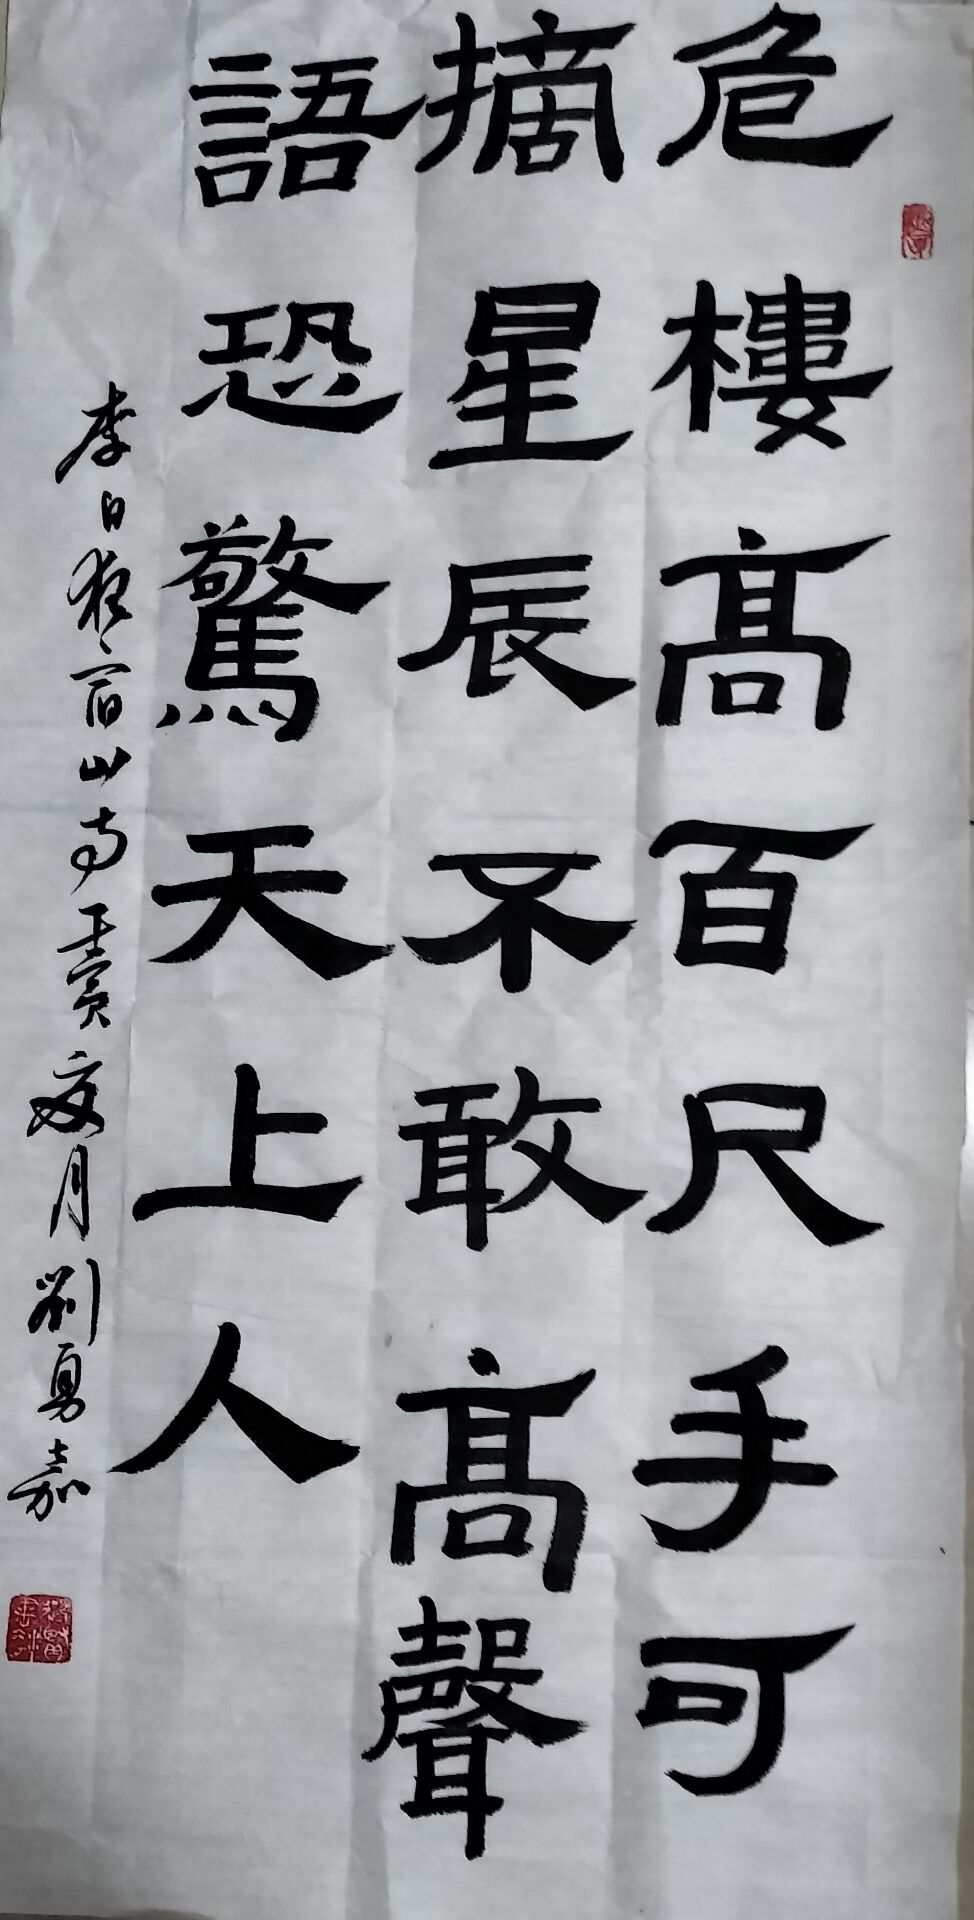 危樓高百尺手可
摘星辰不敢高聲
語恐驚天上人
李白夜宿山寺壬寅夏月劉勇嘉